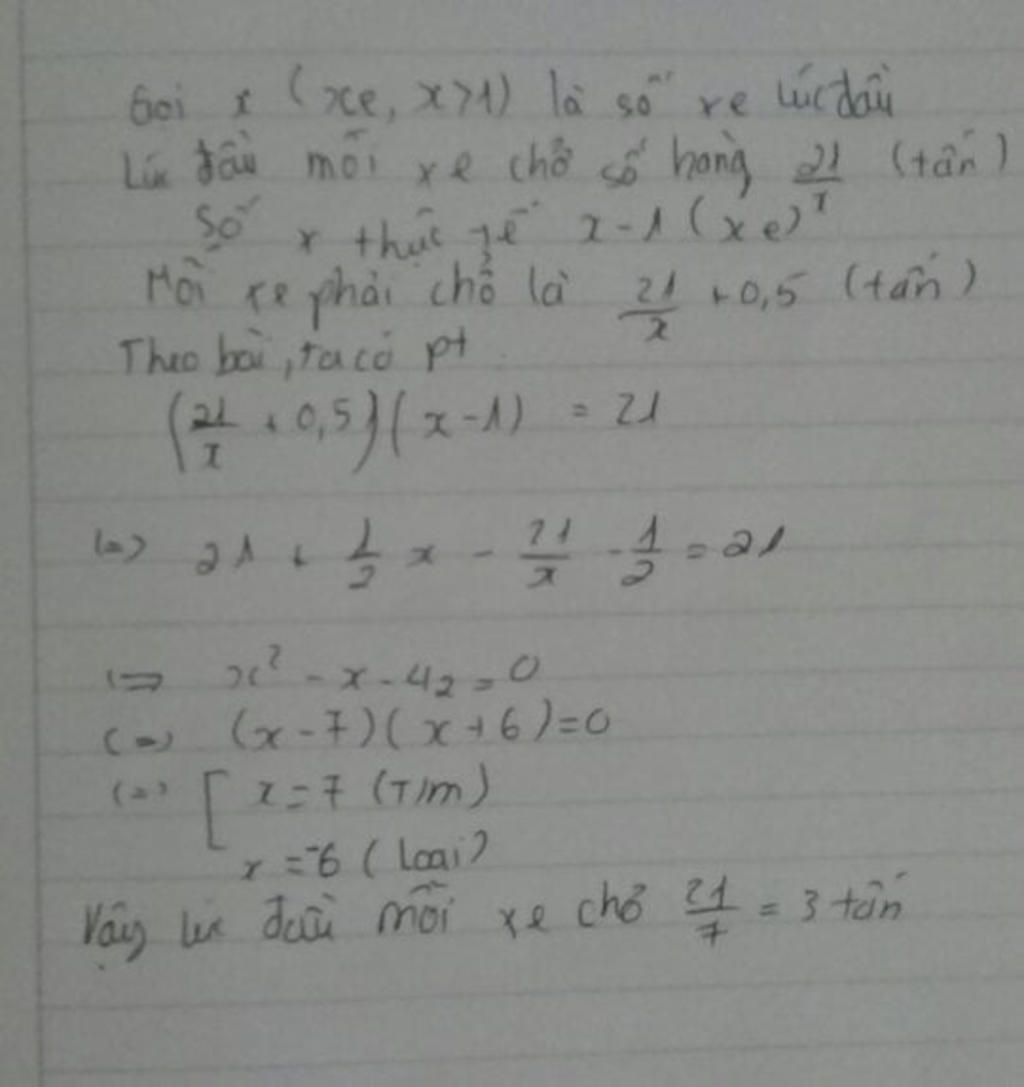 Gọi x (xe, x>1) là số xe lúc đầu
Lúc đầu mỗi xe chở số hàng 21/x (tấn)
Số x thực tế x-1 (xe)
Mỗi xe phải chở là 21/x + 0,5 (tấn)
Theo bài, ta có pt
(21/x + 0,5)(x-1) = 21
(=) 21 + 1/2 x - 21/x - 1/2 = 21
(=) x² - x - 42 = 0
(=) (x-7)(x+6)=0
(=) [ x=7 (T/m)
x = -6 (Loại)
Vậy lúc đầu mỗi xe chở 21/7 = 3 tấn